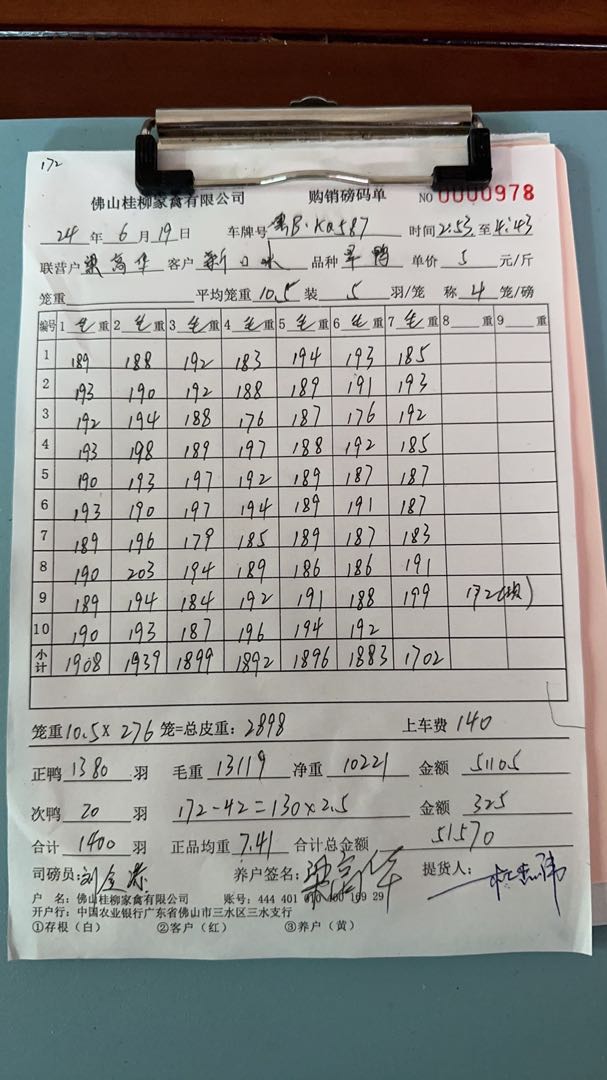 172
佛山桂柳家禽有限公司 购销磅码单 NO 0000978
24 年 6 月 19 日 车牌号 粤B·KQ587 时间 2:53 至 4:43
联营户 梁高华 客户 新口水 品种 旱鸭 单价 5 元/斤
笼重 平均笼重 10.5 装 5 羽/笼 称 4 笼/磅
编号 1 毛 重 2 毛 重 3 毛 重 4 毛 重 5 毛 重 6 毛 重 7 毛 重 8 重 9 重
1 189 188 192 183 194 193 185
2 193 190 192 188 189 191 193
3 192 194 188 176 187 176 192
4 193 198 189 197 188 192 185
5 190 193 197 192 189 187 187
6 193 190 197 194 189 191 187
7 189 196 179 185 189 187 183
8 190 203 194 189 186 186 191
9 189 194 184 192 191 188 199 172
10 190 193 187 196 194 192
小计 1908 1939 1899 1892 1896 1883 1702
笼重 10.5 × 276 笼=总皮重: 2898 上车费 140
正鸭 1380 羽 毛重 13119 净重 10221 金额 51105
次鸭 20 羽 172-42=130×2.5 金额 325
合计 1400 羽 正品均重 7.41 合计总金额 51570
司磅员: 养户签名: 梁高华 提货人:
户 名: 佛山桂柳家禽有限公司 账号: 444 401 010 400 169 29
开户行: 中国农业银行广东省佛山市三水区三水支行
①存根（白） ②客户（红） ③养户（黄）